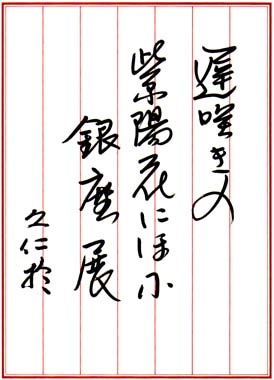 遅咲きの
紫陽花にほふ
銀座展
久仁於